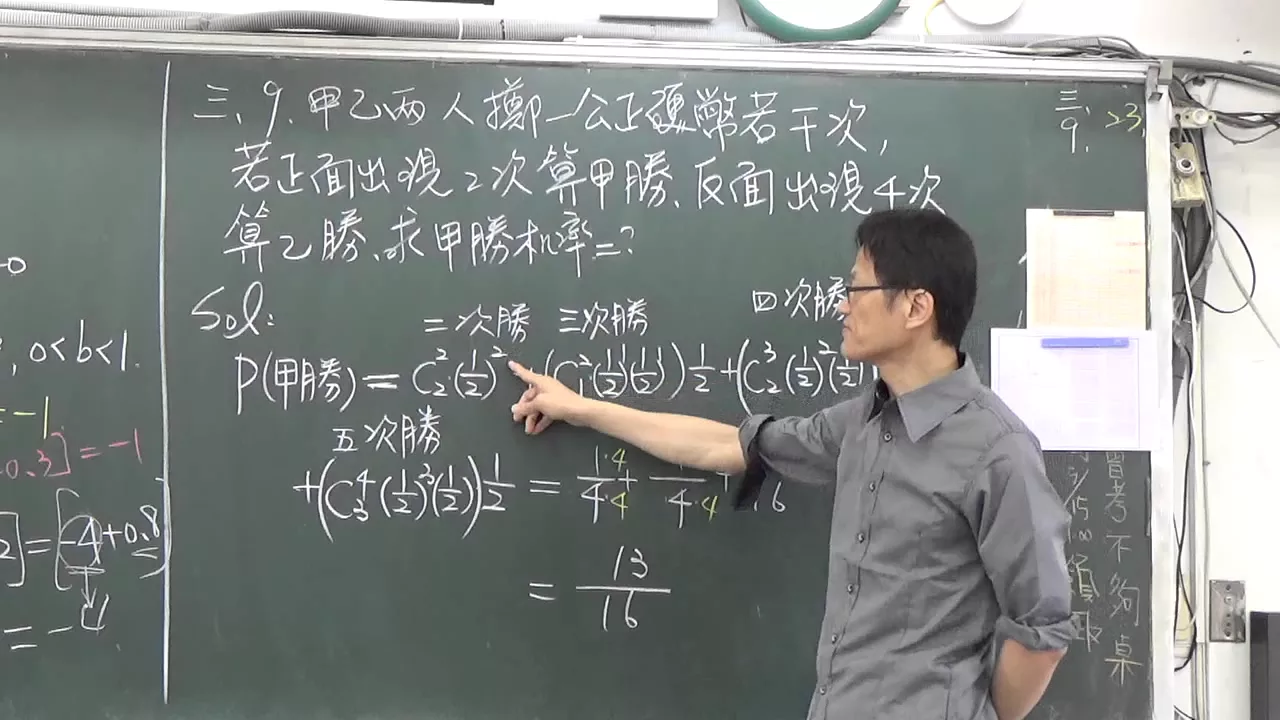 三、9. 甲乙兩人擲一公正硬幣若干次,
若正面出現2次算甲勝、反面出現4次
算乙勝、求甲勝机率=?
Sol:
二次勝 三次勝 四次勝
P(甲勝) = C²₂(1/2)² + (C²₁(1/2)¹(1/2)¹)1/2 + (C³₂(1/2)²(1/2)
五次勝
+(C⁴₃(1/2)³(1/2))1/2 = 1·4/4·4 + 1/4·4 + 16
= 13/16
三、
9.
>3,
0
, 0<b<1.
= -1
0.3] = -1
2] = [-4+0.8]
= -4
不夠桌